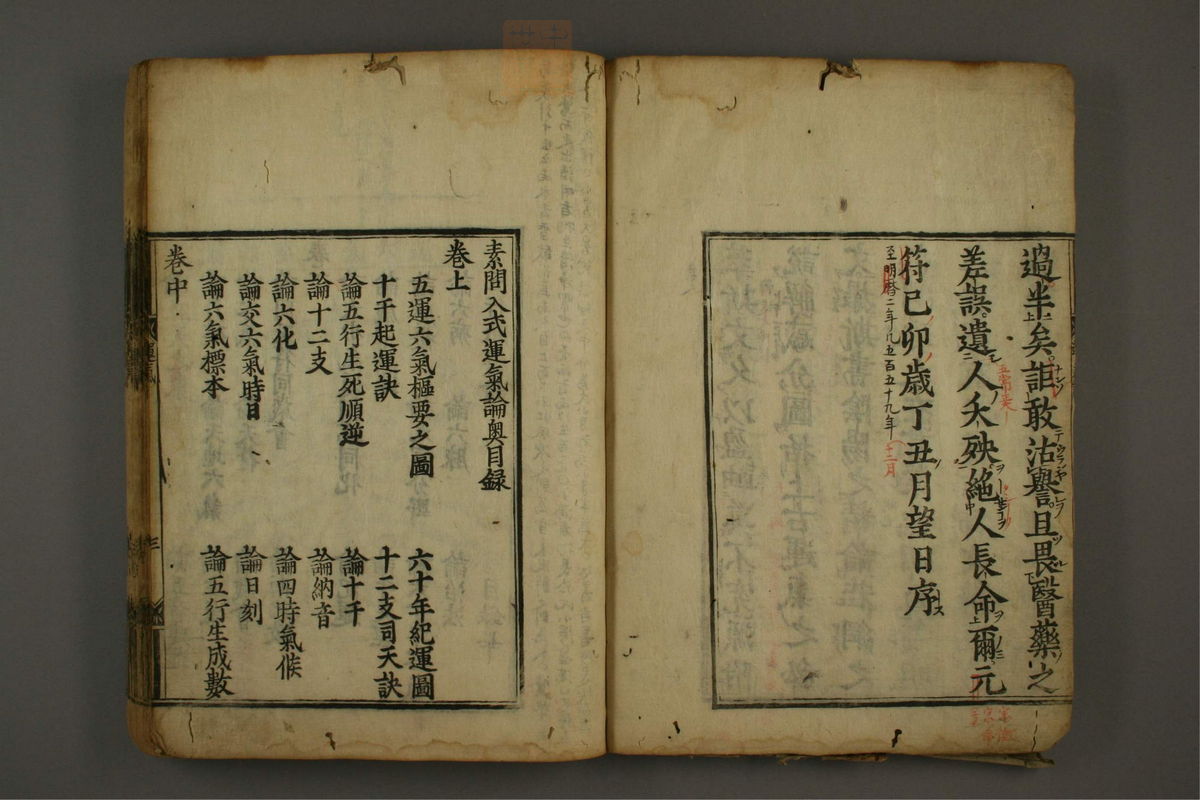 過半矣詎敢沽譽且畏醫藥之
差誤遺人夭殃絕人長命爾元
符己卯歲丁丑月望日序
至明暦二年凡五百五十九年
十二月
素問入式運氣論奥目録
卷上
五運六氣樞要之圖 六十年紀運圖
十干起運訣 十二支司天訣
論五行生死順逆 論十干
論十二支 論納音
論六化 論四時氣候
論交六氣時日 論日刻
論六氣標本 論五行生成數
卷中